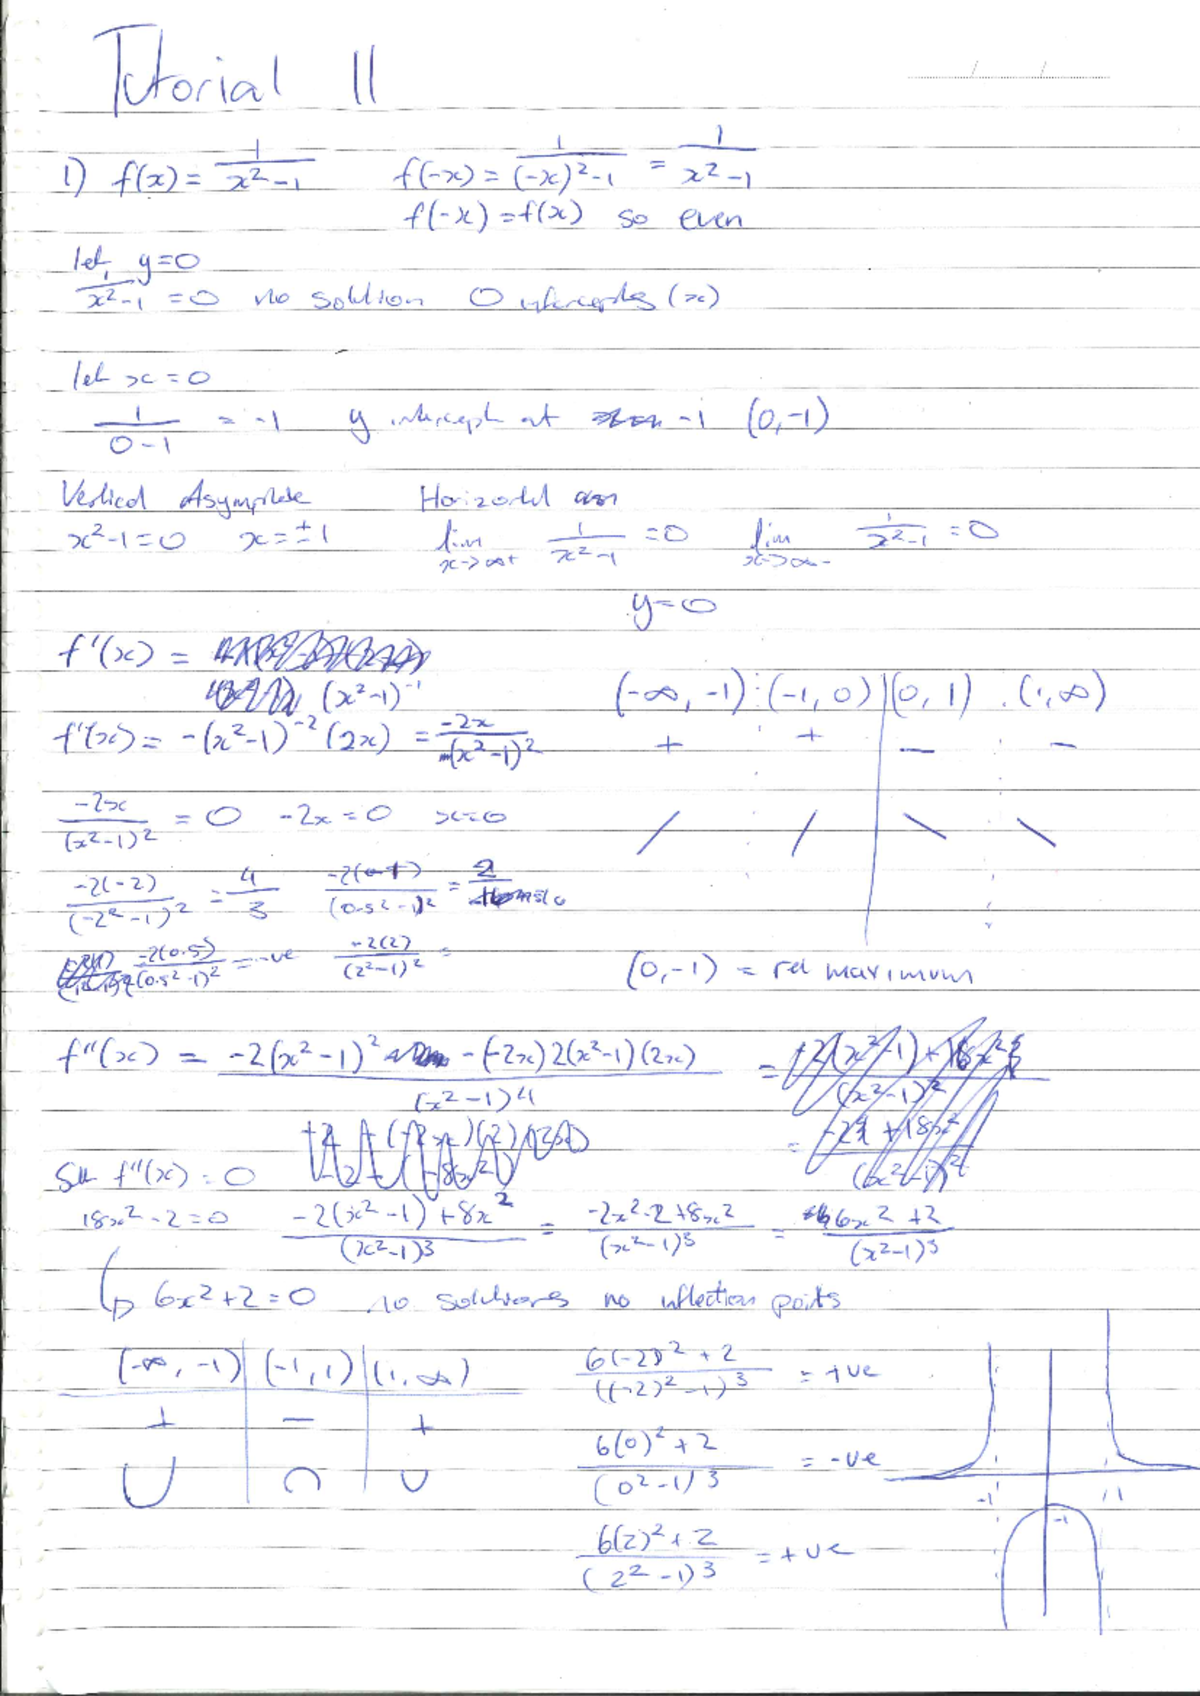 Tutorial 11
1) f(x) = 1/(x²-1)    f(-x) = 1/((-x)²-1) = 1/(x²-1)
f(-x) = f(x) so even
let y=0
1/(x²-1) = 0 no solution 0 intercepts (x)
let x=0
1/(0-1) = -1    y intercept at -1 (0,-1)
Vertical Asymptote    Horizontal
x²-1=0    x=±1    lim x→∞+ 1/(x²-1) = 0    lim x→∞- 1/(x²-1) = 0
y=0
f'(x) =
(x²-1)⁻¹    (-∞, -1) (-1, 0) (0, 1) (1, ∞)
f'(x) = -(x²-1)⁻² (2x) = -2x/(x²-1)²    + + - -
-2x/(x²-1)² = 0    -2x=0    x=0    / / \ \
-2(-2)/(-2²-1)² = 4/3    /(0.5²-1)² =
-2(0.5)/(0.5²-1)² = -ve    -2(2)/(2²-1)² =    (0,-1) = rel maximum
f''(x) = -2(x²-1)² - (-2x)2(x²-1)(2x)/(x²-1)4 =
=
Set f''(x) = 0
18x²-2=0    -2(x²-1)+8x²/(x²-1)³ = -2x²-2+8x²/(x²-1)³ = 6x²+2/(x²-1)³
6x²+2=0 no solutions no inflection points
(-∞, -1) (-1, 1) (1, ∞)    6(-2)²+2/((-2)²-1)³ = +ve
+ - +    6(0)²+2/(0²-1)³ = -ve
-1 1
-1
6(2)²+2/(2²-1)³ = +ve